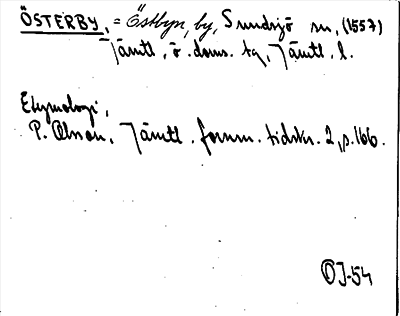 ÖSTERBY, = Östbyn, by, Sundsjö sn, (1557)
Jämtl. ö. doms. tg, Jämtl. l.
Etymologi,
P. Olsson, Jämtl. fornm. tidskr. 2, s. 166.
OJ-54